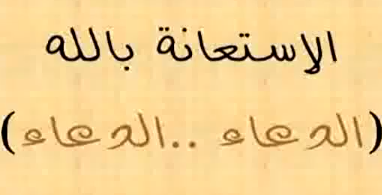 الإستعانة بالله
(الدعاء ..الدعاء)